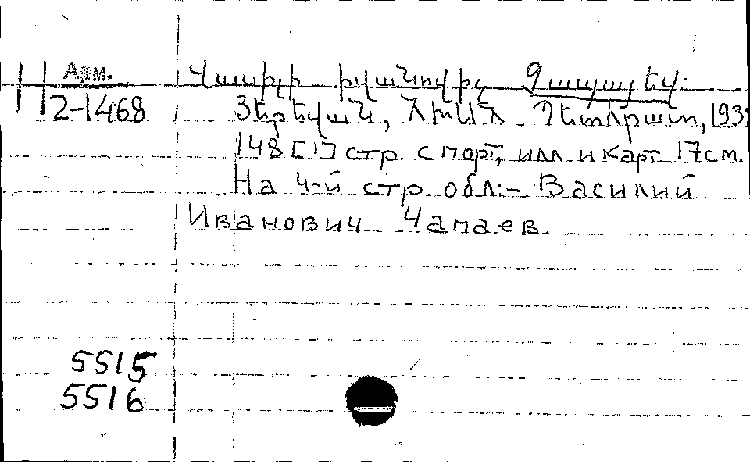 Арм.
2-1468
Վասիլի Իվանովիչ Չապաեվ.
Յերեվան, Պետհրատ, 193
148 [1] стр. с порт., илл. и карт. 17 см.
На 4-й стр. обл:– Василий
Иванович Чапаев.
5515
5516